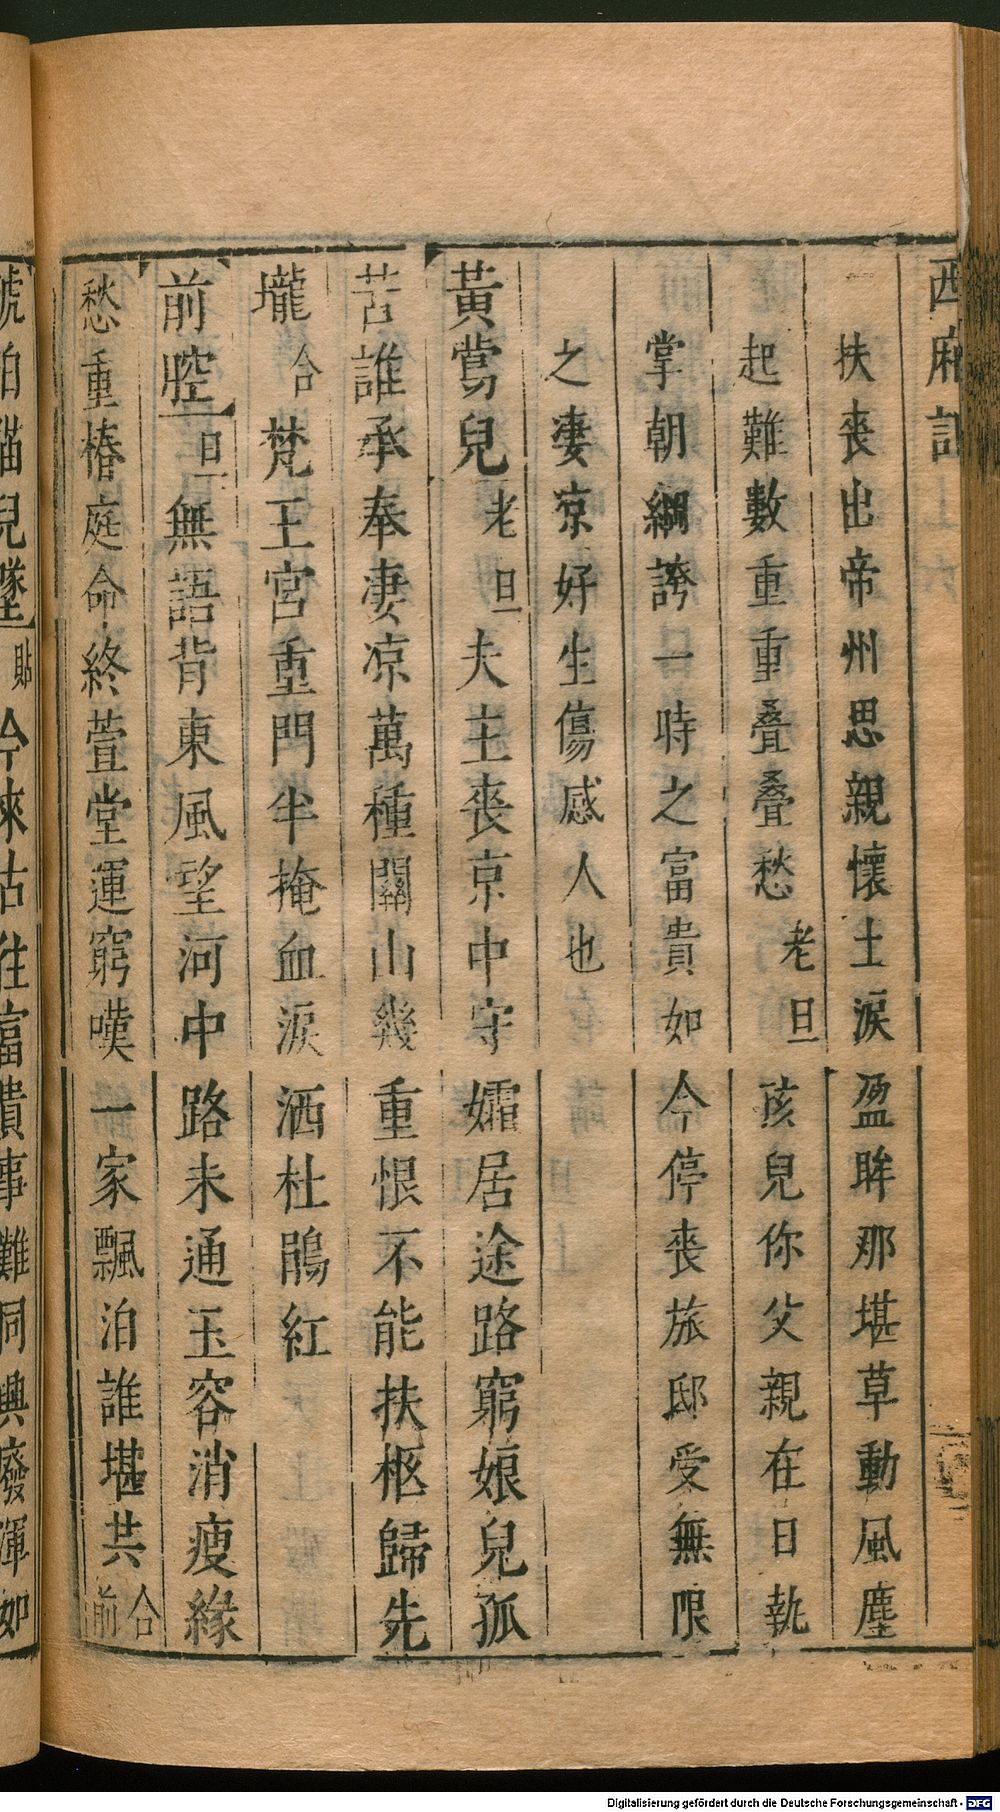 西廂記
扶喪出帝州思親懷土淚盈眸那堪草動風塵
起難數重重叠叠愁老旦孩兒你父親在日執
掌朝綱誇一時之富貴如今停喪旅邸受無限
之凄凉好生傷感人也
黃鶯兒老旦夫主喪京中守孀居途路窮娘兒孤
苦誰承奉凄凉萬種關山幾重恨不能扶柩歸先
壠合梵王宮重門半掩血淚洒杜鵑紅
前腔旦無語背東風望河中路未通玉容消瘦緣
愁重椿庭命終萱堂運窮嘆一家飄泊誰堪共合前
號泊猫兒墜貼今來古往富貴事難同興廢渾如
Digitalisierung gefördert durch die Deutsche Forschungsgemeinschaft - DFG